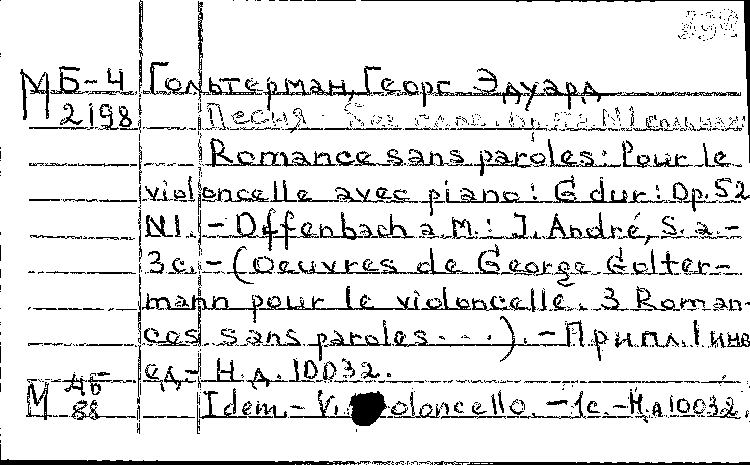 М Б-4 Гольтерман, Георг Эдуард
2198 Песня без слов. Op. 52. N1
Romance sans paroles: Pour le
violoncelle avec piano: G dur: Op. 52
N1. - Offenbach a M.: J. André, S. a. -
3с. - (Oeuvres de George Golter-
mann pour le violoncelle. 3 Roman-
ces sans paroles...). - Припл. 1 инв
ед. - Н.д. 10032.
М 4Б
88 Idem. - V. oloncello. - 1с. - Н.д 10032.